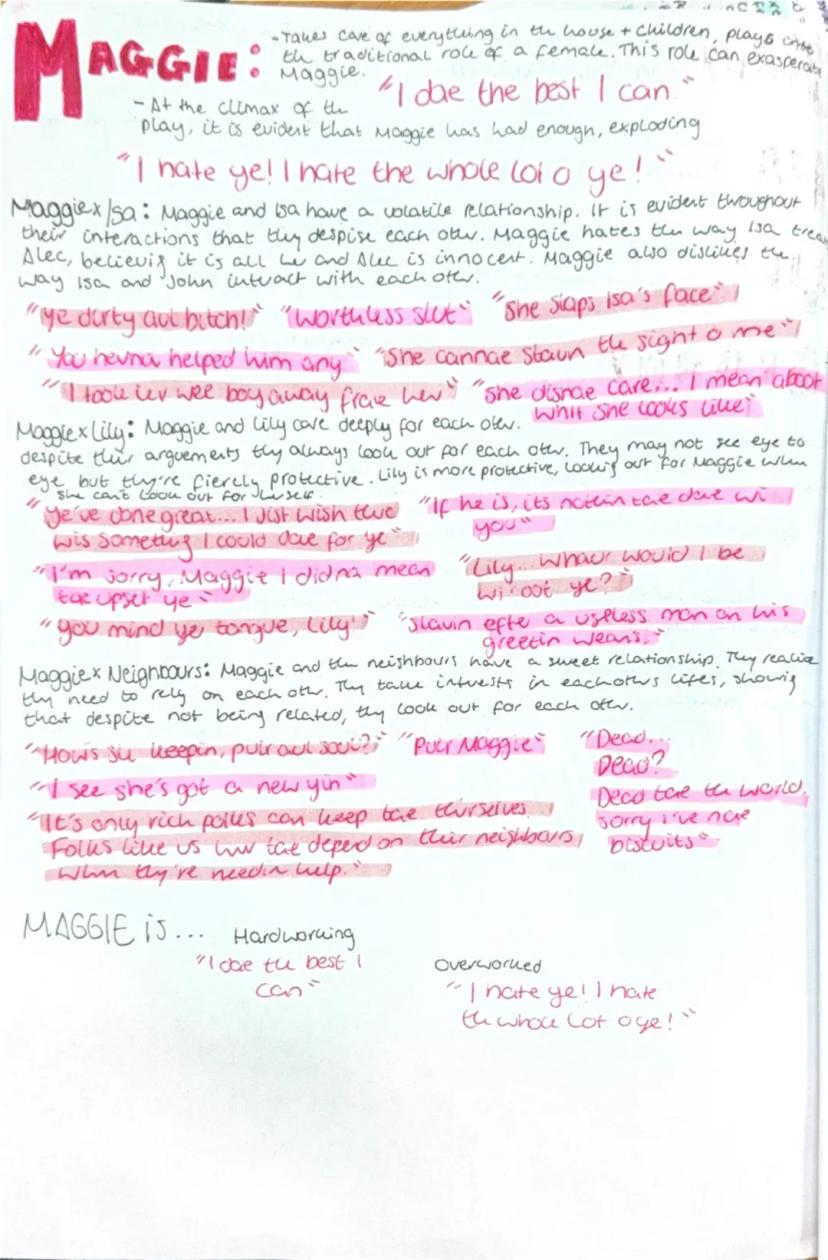 MAGGIE:
-Takes care of everything in the house + children, plays into
the traditional role of a female. This role can exasperate
Maggie.
"I dae the best I can"
- At the climax of the
play, it is evident that Maggie has had enough, exploding
"I hate ye! I hate the whole lot o ye!"
Maggie x Isa: Maggie and Isa have a volatile relationship. It is evident throughout
their interactions that they despise each other. Maggie hates the way Isa
Alec, believing it is all her and Alec is innocent. Maggie also dislikes the
way Isa and John interact with each other.
"ye durty aul bitch!" "Worthless slut" "She slaps Isa's face"
"You hevna helped him any" "She cannae staun the sight o me"
"I took her wee boy away frae her" "She disnae care... I mean aboot
whit she looks like"
Maggie x Lily: Maggie and Lily care deeply for each other.
despite their arguements they always look out for each other. They may not see eye to
eye but they're fiercely protective. Lily is more protective, looking out for Maggie when
she can't look out for herself.
"Ye've done great... I jist wish there
wis something I could dae for ye" "If he is, its nothin tae dae wi
you"
"I'm sorry, Maggie I didna mean
tae upset ye" "Lily... whaur would I be
wi'oot ye?"
"you mind ye tongue, Lily!" "slavin efter a useless man an his
greetin weans."
Maggie x Neighbours: Maggie and the neighbours have a sweet relationship. They realize
they need to rely on each other. They take intrests in eachothers lifes, showing
that despite not being related, they look out for each other.
"How's su keepin, puir aul soul?" "Puir Maggie" "Dead...
Dead?
Dead tae the world.
sorry I've nae
biscuits"
"I see she's got a new yin"
"It's only rich folks can keep tae thurselves.
Folks like us huv tae depend on their neighbours
when they're needin help."
MAGGIE is...
Hardworking
"I dae the best I
can"
Overworked
"I hate ye! I hate
the whole lot o ye!"